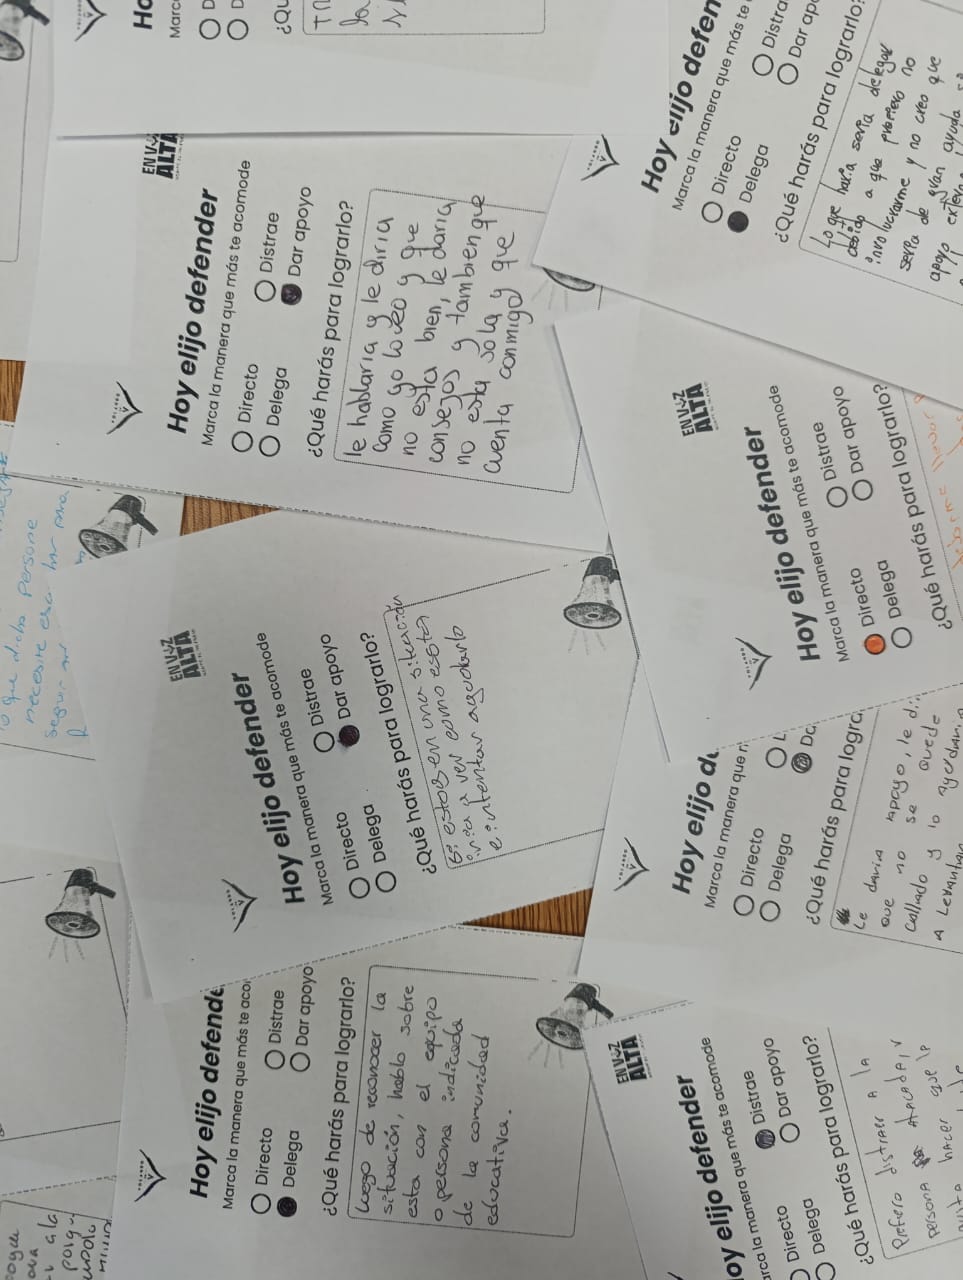 Ho
Marc
¿Qu
EN VOZ
ALTA
Hoy elijo defender
Marca la manera que más te acomode
Directo
Distrae
Delega
Dar apoyo
¿Qué harás para lograrlo?
le hablaria y le diria
como yo lo veo y que
no esta bien, le daria
consejos y tambien que
no esta sola y que
cuenta conmigo
Hoy elijo defen
Marca la manera que más te
Directo
Distra
Delega
Dar apo
¿Qué harás para lograrlo?
lo que haría seria delegar
debido a que prefiero no
involucrarme y no creo que
seria de gran ayuda
apoyo
EN VOZ
ALTA
Hoy elijo defender
Marca la manera que más te acomode
Directo
Distrae
Delega
Dar apoyo
¿Qué harás para lograrlo?
que dicha persona
necesite esa
EN VOZ
ALTA
Hoy elijo defender
Marca la manera que más te acomode
Directo
Distrae
Delega
Dar apoyo
¿Qué harás para lograrlo?
Si estoy en una situación
iria a ver como esta
e intentar ayudarlo
Hoy elijo d
Marca la manera que
Directo
Delega
¿Qué harás para logra
Le daria apoyo, le d
que no se quede
callado y lo
A Levantar
Hoy elijo defende
Marca la manera que más te aco
Directo
Distrae
Delega
Dar apoyo
¿Qué harás para lograrlo?
Luego de reconocer la
situación, hablo sobre
esta con el equipo
o persona indicada
de la comunidad
educativa.
EN VOZ
ALTA
oy elijo defender
rca la manera que más te acomode
Directo
Distrae
Delega
Dar apoyo
¿Qué harás para lograrlo?
Prefiero distraer a la
persona
hacer que